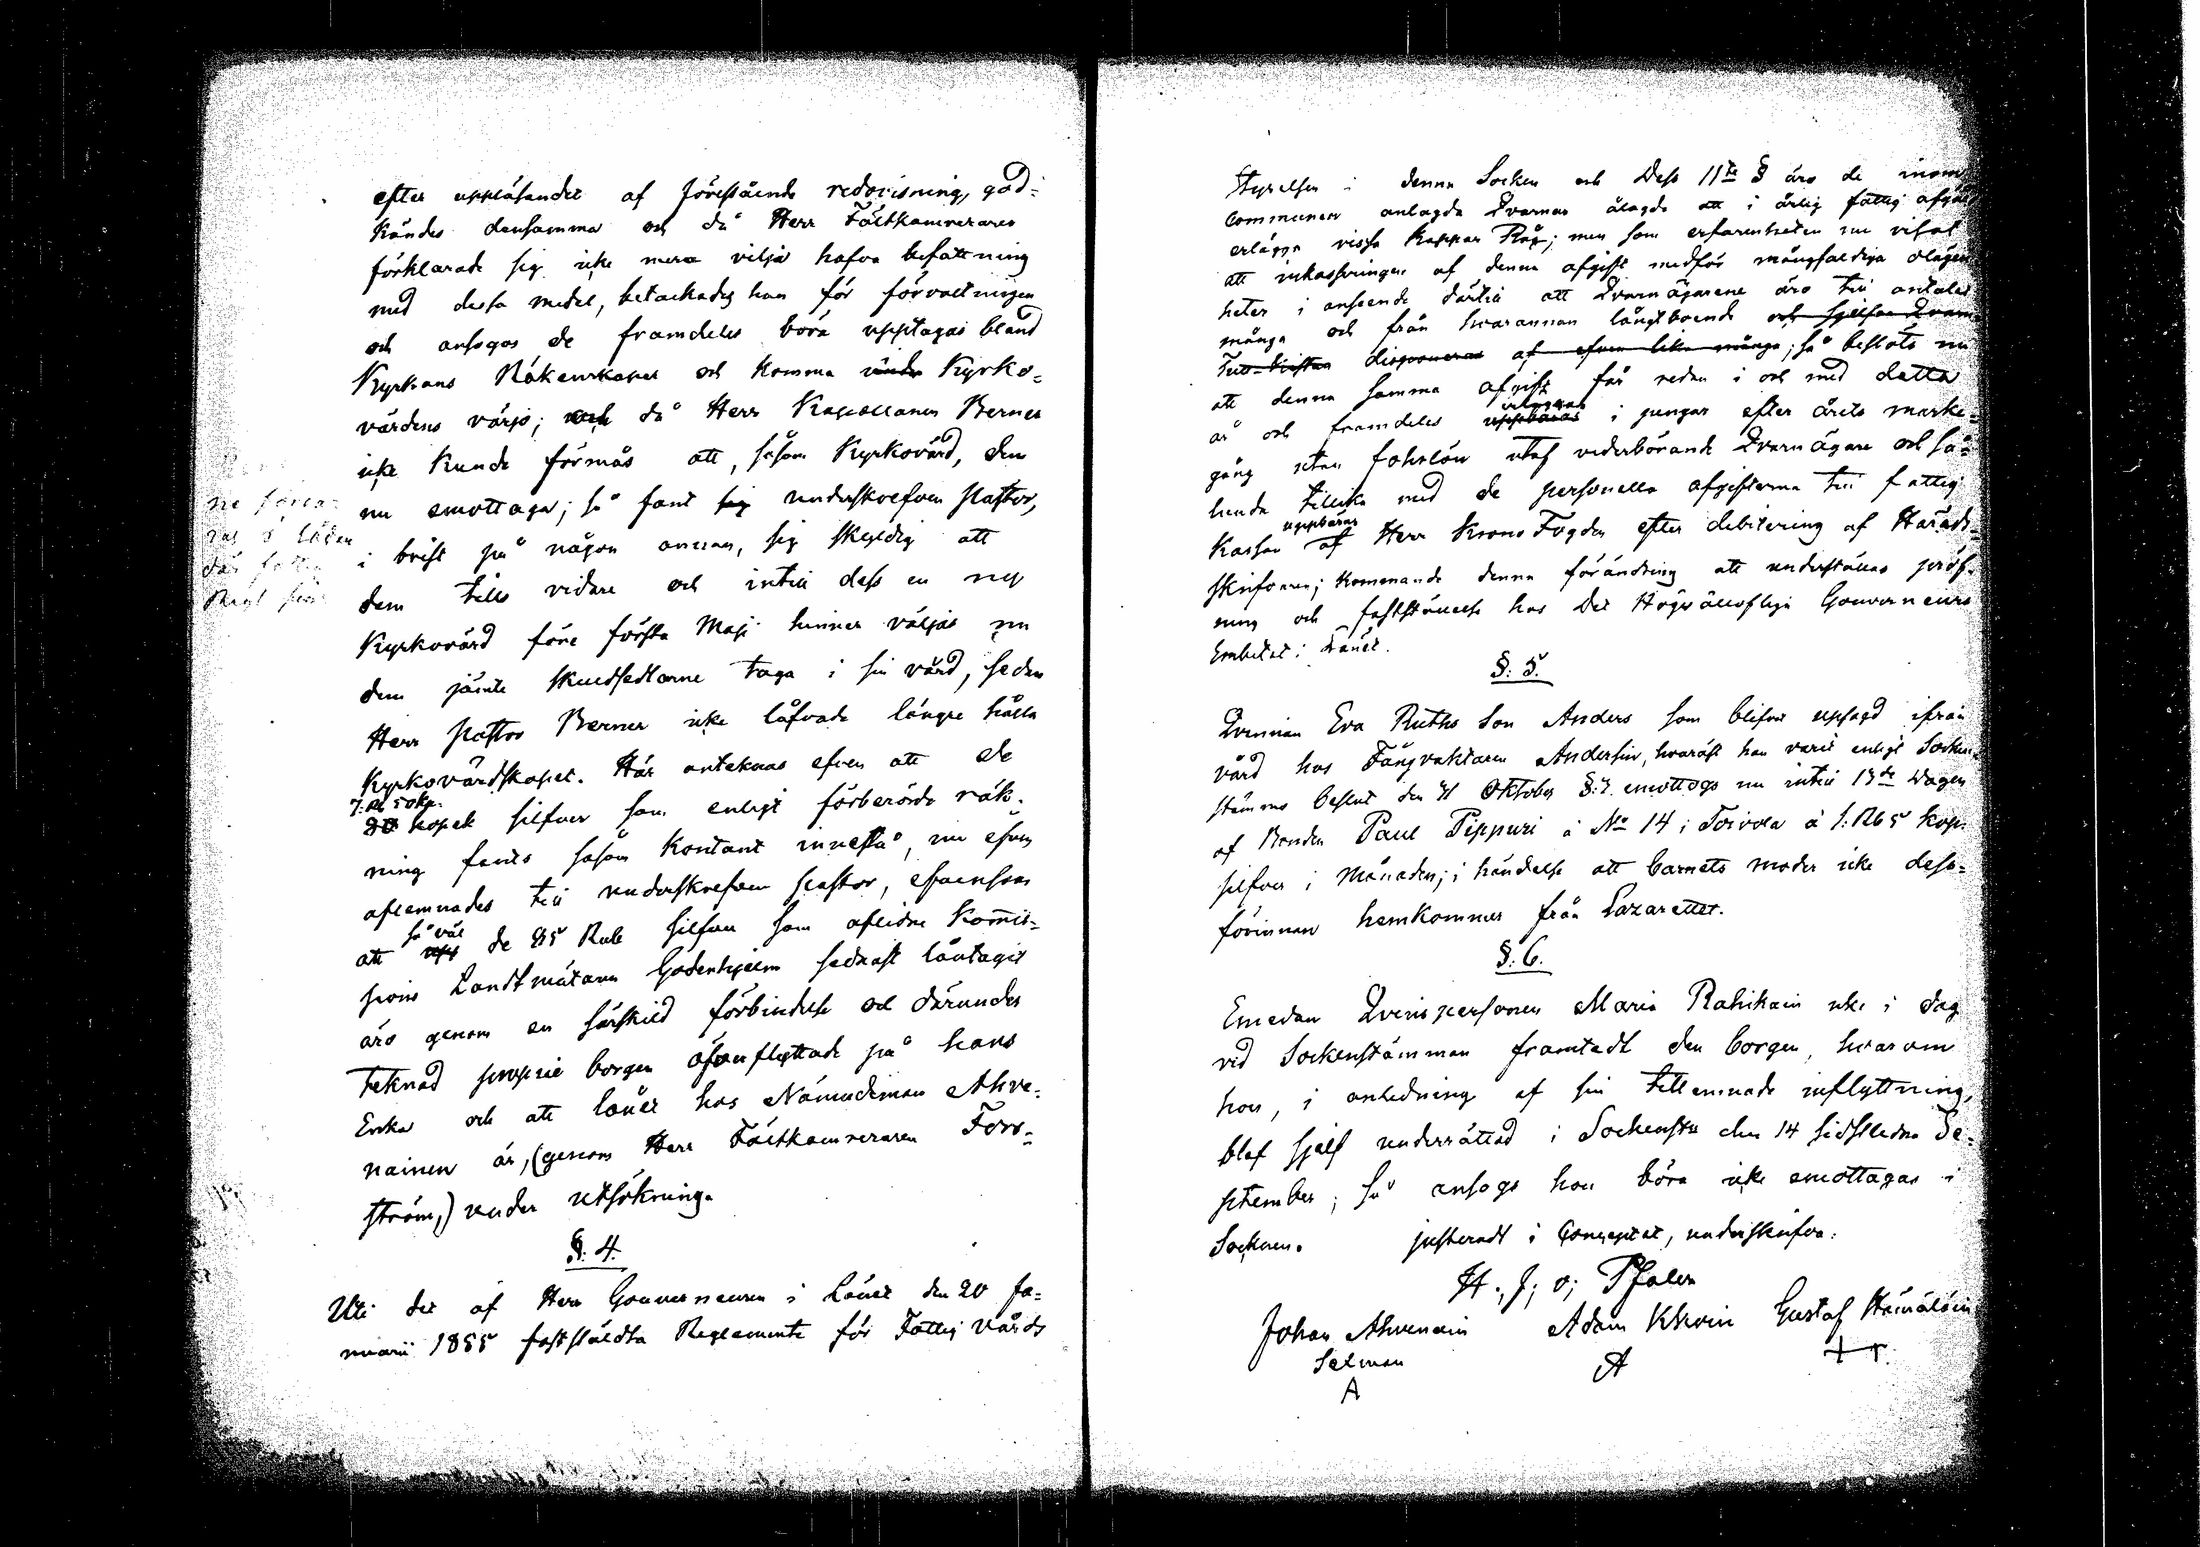 efter uppläsandet af förestående redovisning, god-
kändes densamma och då Herr Fältkamreraren
förklarade sig icke mera vilja hafva befattning
med dessa medel, betackades han för förvaltningen
och ansågos de framdeles böra upptagas bland
Kyrkans Räkenskaper och komma under Kyrko-
värdens värjo; och då Herr Kapellanen Berner
icke kunde förmås att, såsom Kyrkovärd, dem
nu emottaga; så fant sig underskrefven Pastor,
i brist på någon annan, sig skyldig att
dem tills vidare och intill dess en ny
Kyrkovärd före första Maji hinner väljas nu
dem jämte skuldsedlarne taga i sin vård, sedan
Herr Pastor Berner icke låfvade längre hålla
Kyrkovärdskapet. Här antecknas efven att de
7. R. 50 kp.
kopek silfver som enligt förberörde räk-
ning fants såsom kontant innestå, nu efven
aflemnades till underskrefven Pastor, efvensom
så väl
att de 85 Rub silfver som aflidne Kommis-
sions Landtmätaren Godenhjelm sednast låntagit
äro genom en särskild förbindelse och därunder
teknad proprie borgen öfverflyttade på hans
Enka och att lånet hos Nämndeman Ahve-
nainen är, (genom Herr Fältkamreraren Fors-
ström,) under utsökning.
§. 4.
Uti det af Herr Gouverneuren i Länet den 20 Ja-
nuarii 1855 fastställdta Reglemente för Fattig vårds
Styrelsen i denna Socken och Dess 11te § äro de inom
Communen anlagda Qvarnar ålagde att i årlig fattig afgäld
erlägga vissa Kappar Råg; men som erfarenheten nu visat
att inkassringen af denna afgift medför mångfaldiga olägen
heter i anseende därtill att Qvarnägarene äro till antalet
många och från hvarannan långtboende och sjelfva Qvarn
disponeras af efven lika många; så beslöts nu
att denna samma afgift får redan i och med detta
år och framdeles uppbäras i pengar efter årets marke-
gång utan foholön utaf vederbörande Qvarnägare och så-
lunda tillika med de personella afgifterna till fattig
uppbäras
Kassan af Herr Krono Fogden efter debitering af Härads-
skrifvaren; kommande denna förändring att underställas pröf-
ning och fastställelse hos Det Högvällofliga Gouverneurs
Embetet i Länet.
§. 5.
Qvinnan Eva Ruths Son Anders som blifvit uppsagd ifrån
vård hos Fångvaktaren Andersin, hvaräst han varit enligt Socken-
stämmo beslut den 31 Oktober §. 7. emottogs nu intill 13de Dagen
af Bonden Paul Pippuri å No 14 i Toivola à 1. R 65 kop.
silfver i Månaden; i händelse att barnets moder icke dess-
förinnan hemkommer från Lazarettet.
§. 6.
Emedan Qvinspersonen Maria Rahikain icke i dag
vid Sockenstämman framtedt den borgen, hvarom
hon, i anledning af sin tillemnade inflyttning,
blef sjelf underrättad i Sockenst: den 14 sidstledne Se-
ptember; så ansogs hon böra icke emottagas i
Socknen. justeradt i Conceptet, underskrifva:
H. J. v; Pfaler
Johan Ahvenain Adam Ukkoin Gustaf Hämäläin
Sexman
A A